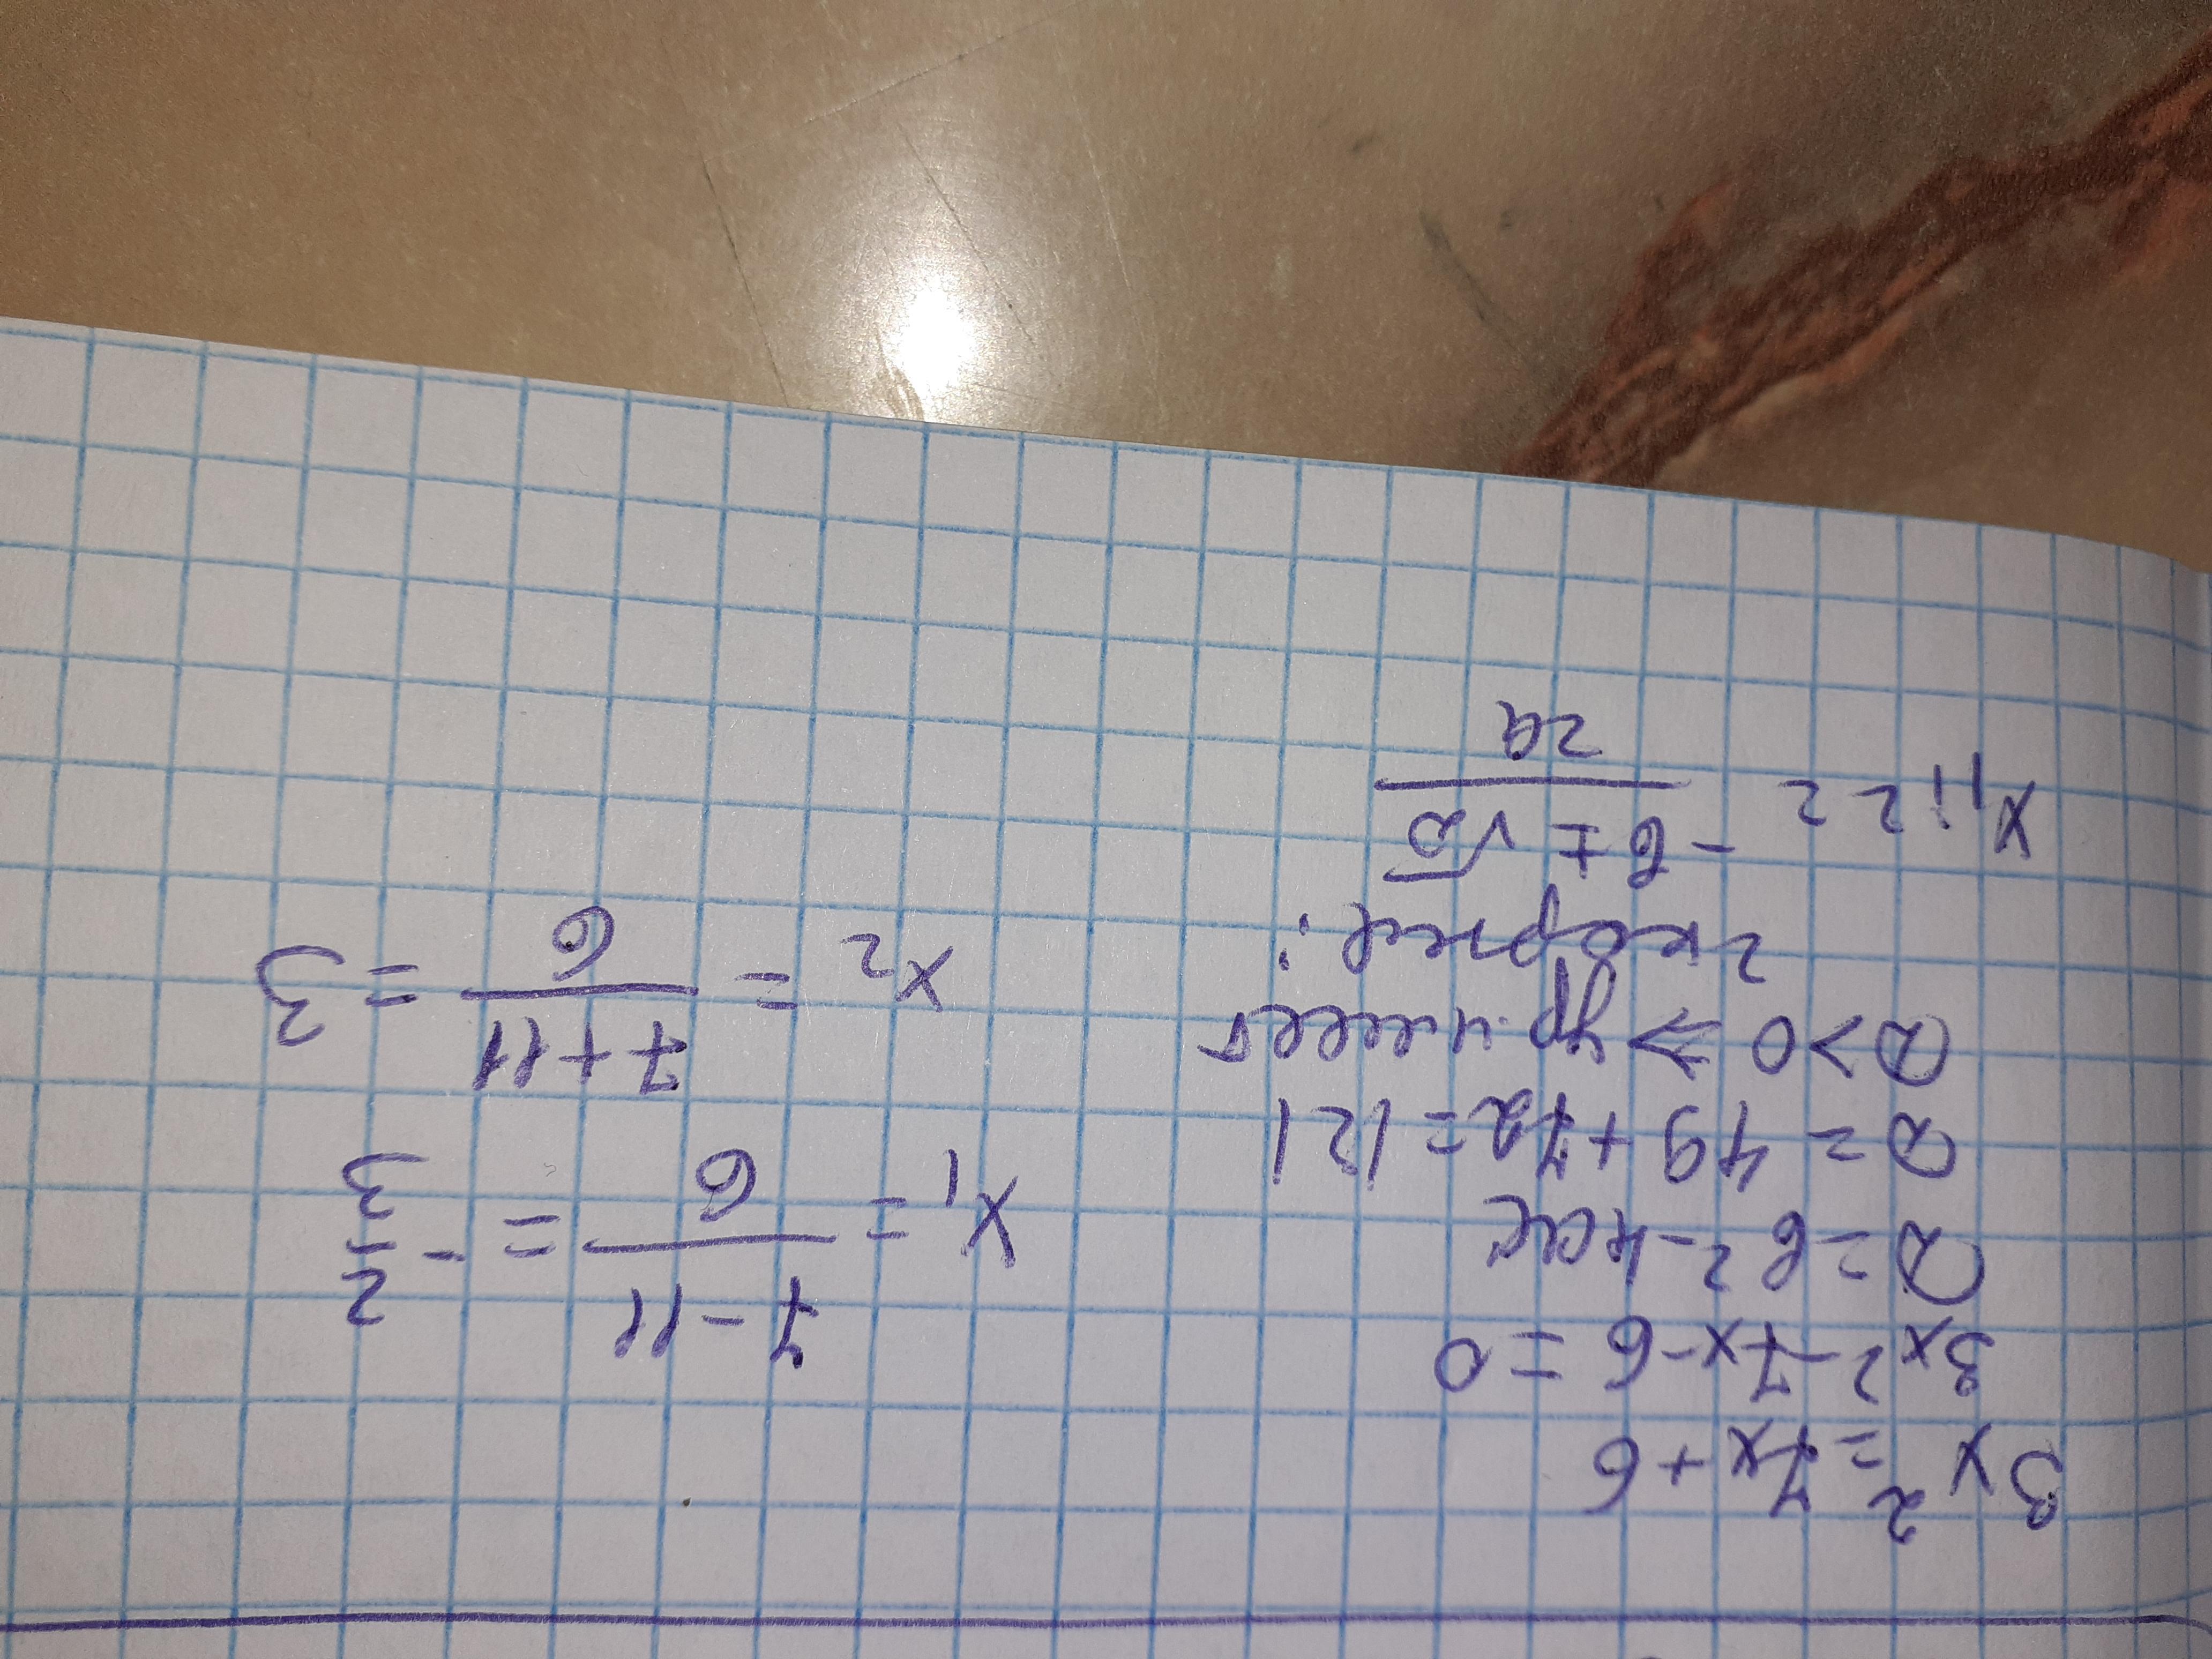 3x² = 7x + 6
3x² - 7x - 6 = 0
D = b² - 4ac
D = 49 + 72 = 121
D > 0 ⇒ ур. имеет
2 корня:
x₁;₂ = (-b ± √D) / 2a
x₁ = (7 - 11) / 6 = -2/3
x₂ = (7 + 11) / 6 = 3